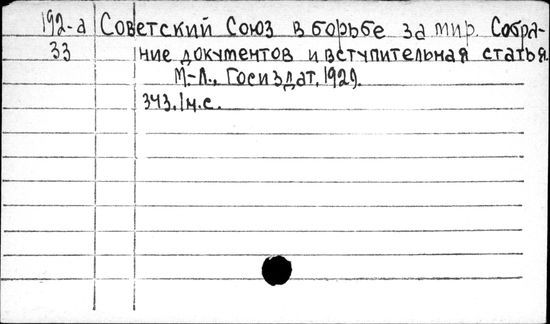 192-а Советский Союз в борьбе за мир. Собра-
33 ние документов и вступительная статья.
М-Л., Госиздат, 1929.
343.1н.с.